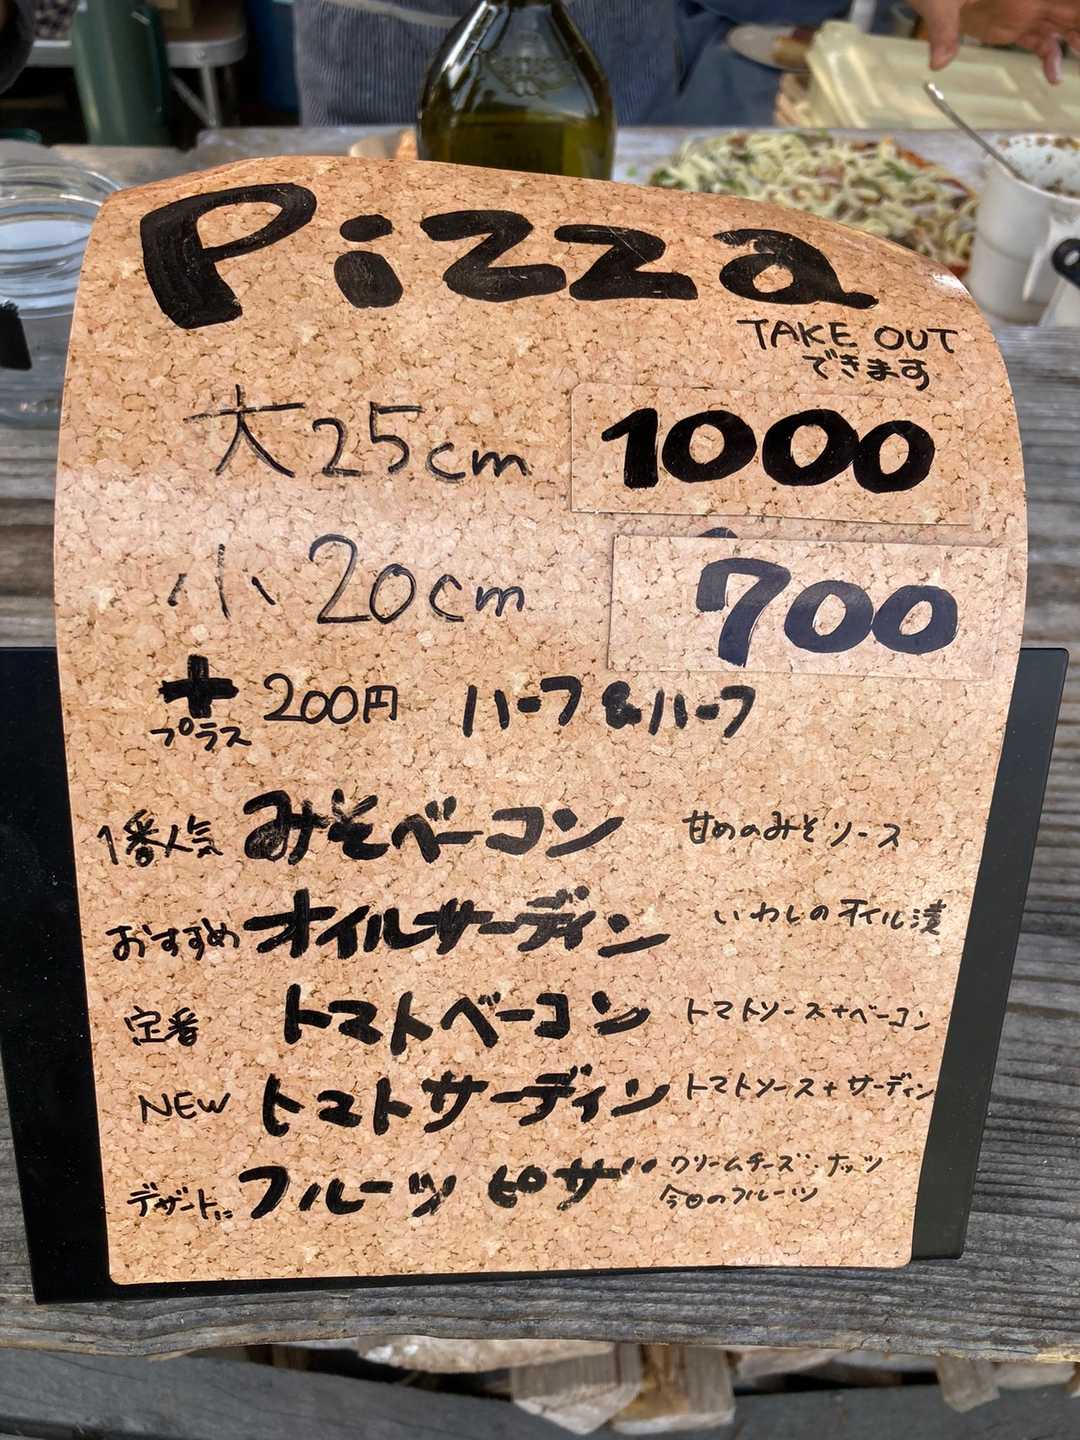 Pizza
TAKE OUT
できます
大 25cm 1000
小 20cm 700
+ 200円 ハーフ&ハーフ
プラス
1番人気 みそベーコン 甘めのみそソース
おすすめ オイルサーディン いわしのオイル漬
定番 トマトベーコン トマトソース+ベーコン
NEW トマトサーディン トマトソース+サーディン
デザートに フルーツピザ クリームチーズ・ナッツ
今日のフルーツ